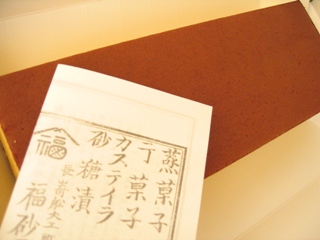 蒸菓子
丁菓子
カステイラ
砂糖漬
長崎船大工町
福砂
福